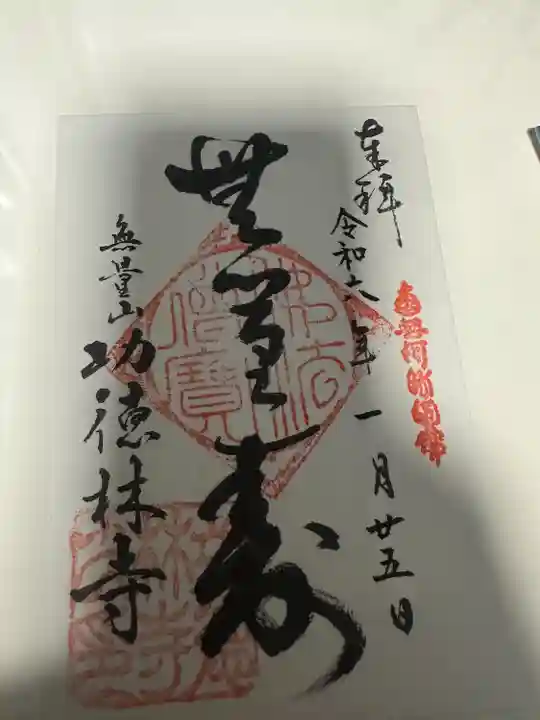 南無阿弥陀佛
奉拝
令和六年一月廿五日
無量寿
佛法僧寶
無量山
功徳林寺